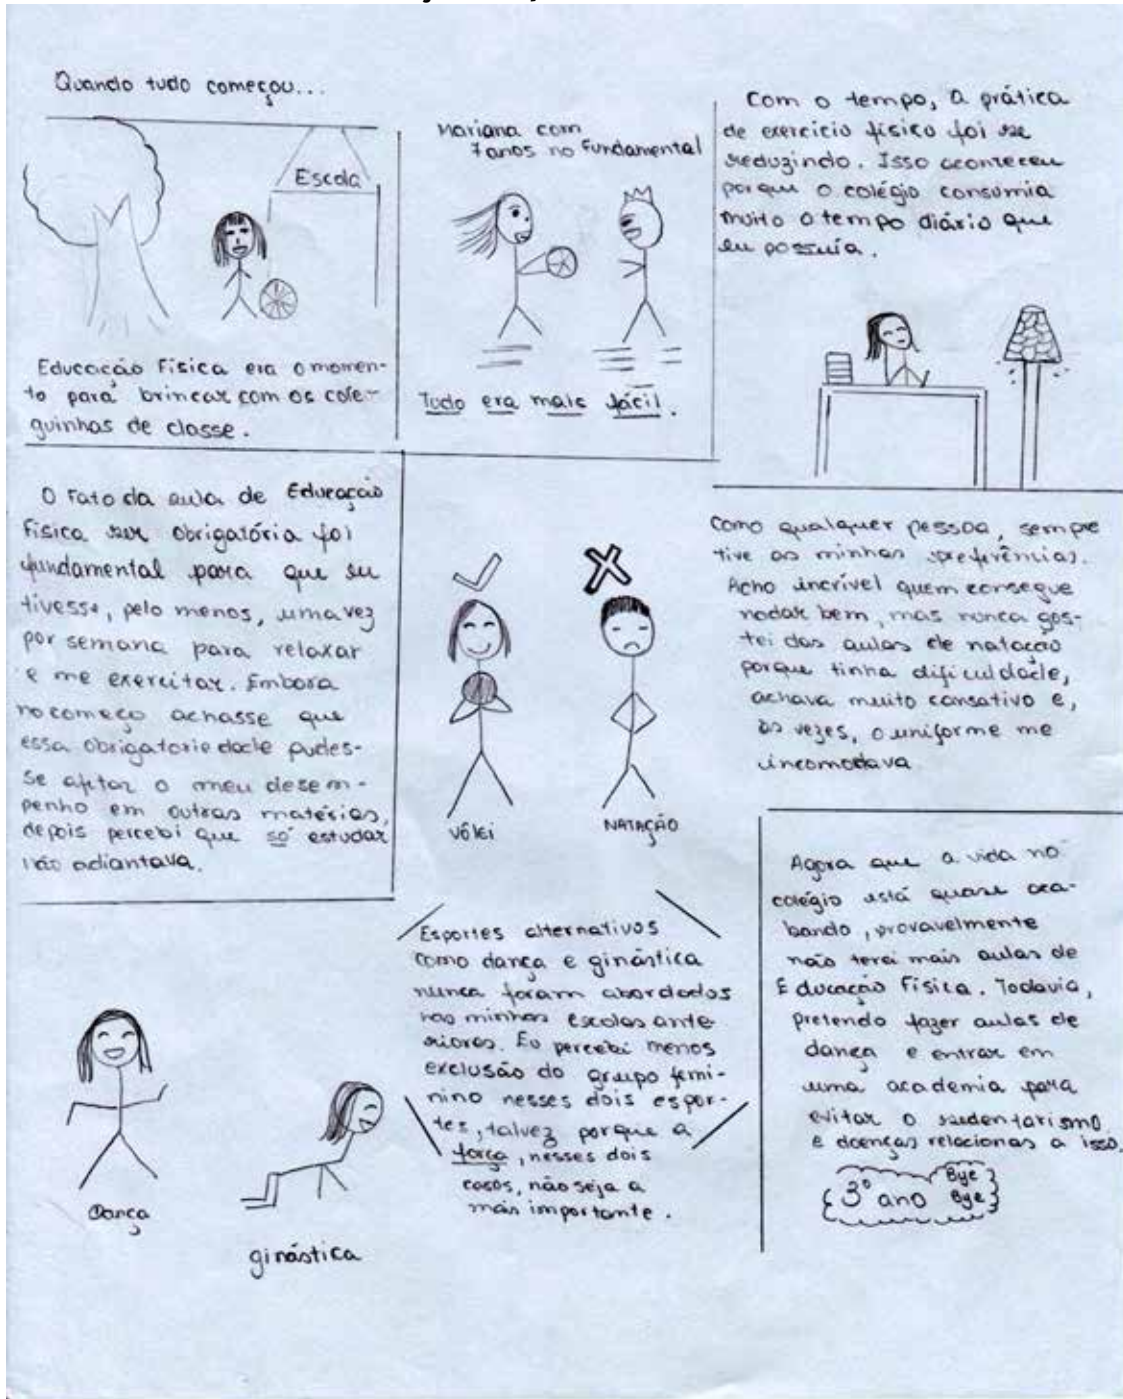 Quando tudo começou...
Escola
Educação Física era o momen-
to para brincar com os cole-
guinhas de classe.
Mariana com
7 anos no Fundamental
Tudo era mais fácil.
Com o tempo, a prática
de exercício físico foi se
reduzindo. Isso aconteceu
porque o colégio consumia
muito o tempo diário que
eu possuía.
O Fato da aula de Educação
Física ser obrigatória foi
fundamental para que eu
tivesse, pelo menos, uma vez
por semana para relaxar
e me exercitar. Embora
no começo achasse que
essa obrigatoriedade pudes-
se afetar o meu desem-
penho em outras matérias,
depois percebi que só estudar
não adiantava.
VÔLEI
NATAÇÃO
Como qualquer pessoa, sempre
tive as minhas preferências.
Acho incrível quem consegue
nadar bem, mas nunca gos-
tei das aulas de natação
porque tinha dificuldade,
achava muito cansativo e,
às vezes, o uniforme me
incomodava
Dança
ginástica
Esportes alternativos
como dança e ginástica
nunca foram abordados
nas minhas escolas ante-
riores. Eu percebi menos
exclusão do grupo femi-
nino nesses dois espor-
tes, talvez porque a
força, nesses dois
casos, não seja a
mais importante.
Agora que a vida no
colégio está quase aca-
bando, provavelmente
não terei mais aulas de
Educação Física. Todavia,
pretendo fazer aulas de
dança e entrar em
uma academia para
evitar o sedentarismo
e doenças relacionas a isso.
3º ano Bye
Bye